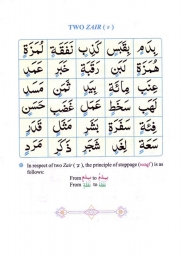 TWO ZAIR ( ٍ )
بِدَمٍ بِقَبَسٍ كَذِبٍ نَفَقَةٍ لُمَزَةٍ
هُمَزَةٍ لَبَنٍ رَقَبَةٍ خَبَرٍ عَمَلٍ
عِنَبٍ مِائَةٍ بِيَدٍ ثَمَنٍ مَسَدٍ
لَهَبٍ سَخَطٍ عَمَدٍ غَضَبٍ حَسَنٍ
فِئَةٍ سَفَرَةٍ بَشَرٍ مَثَلٍ قَدَرٍ
سَعَةٍ لِغَدٍ شَجَرٍ ذَكَرٍ مَرَدٍ
In respect of two Zair ( ٍ ), the principle of stoppage (waqf) is as follows:
From بِدَمٍ to بِدَمْ
From لِغَدٍ to لِغَدْ